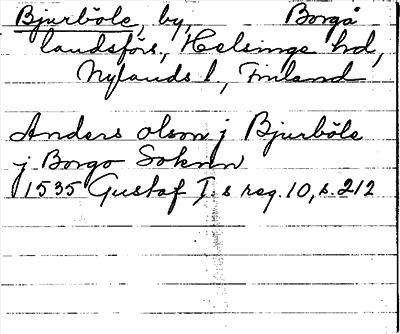 Bjurböle, by, Borgå
landsförs., Helsinge hd,
Nylands l, Finland
Anders olson j Bjurböle
j Borgo Soknn
1535 Gustaf I:s reg. 10, s. 212